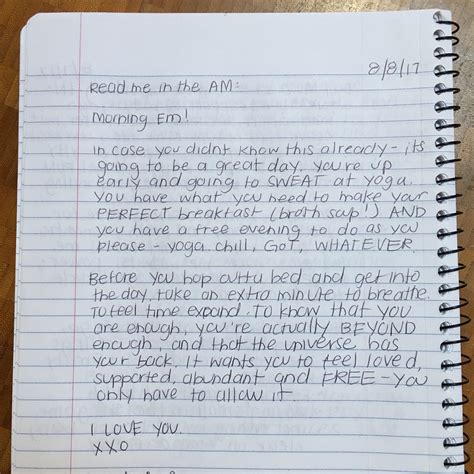 8/8/17
Read me in the AM:
Morning Em!
In case you didnt know this already - its
going to be a great day. You're up
early and going to SWEAT at yoga.
You have what you need to make your
PERFECT breakfast (broth soup!) AND
you have a free evening to do as you
please - yoga, chill, GOT, WHATEVER.
Before you hop outta bed and get into
the day, take an extra minute to breathe.
To feel time expand. To know that you
are enough, you're actually BEYOND
enough, and that the universe has
your back. It wants you to feel loved,
supported, abundant and FREE - you
only have to allow it.
I LOVE YOU.
XXO